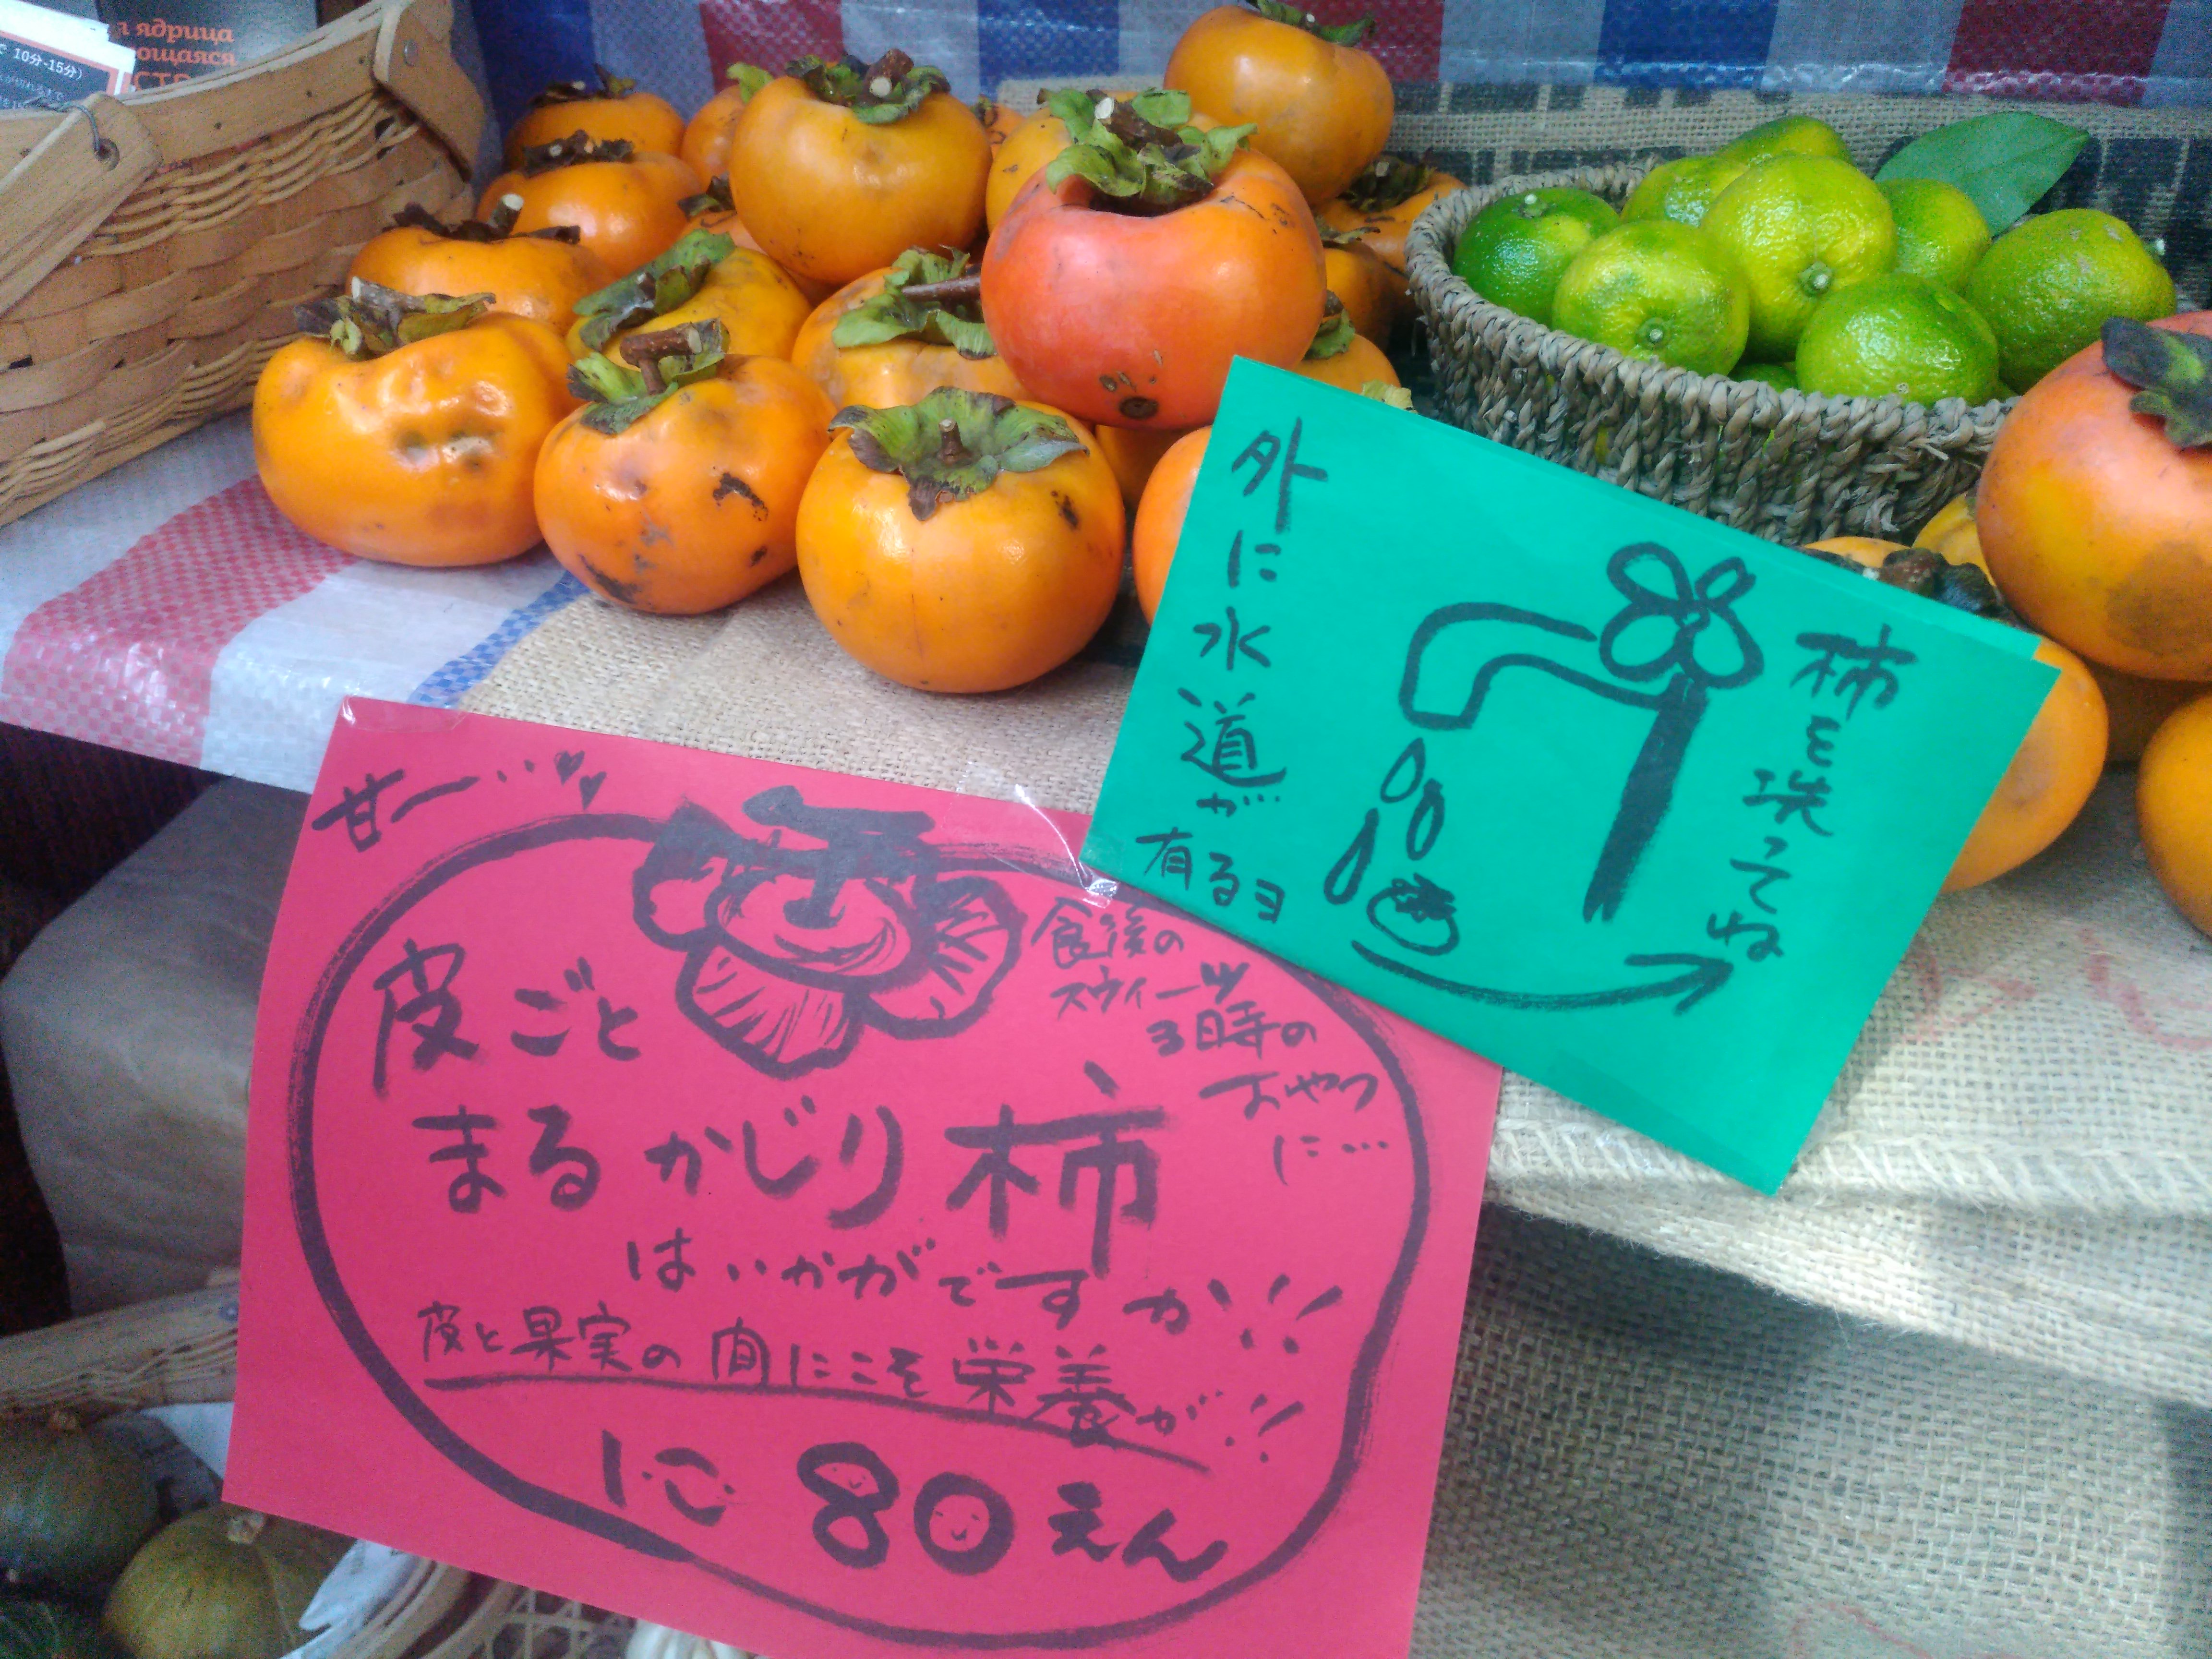 ядрица
ющаяся
10分-15分)
外に水道が有るヨ
柿を洗ってね
甘ー…
皮ごと
まるかじり柿
はいかがですか!!
食後の
スウィーツ
3時の
おやつ
に…
皮と果実の間にこそ栄養が!!
1こ 80えん